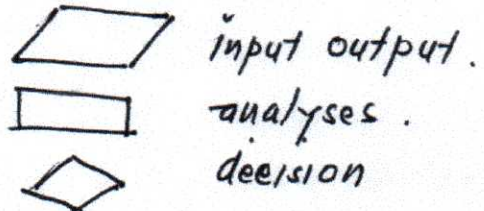 input output.
analyses.
deeision